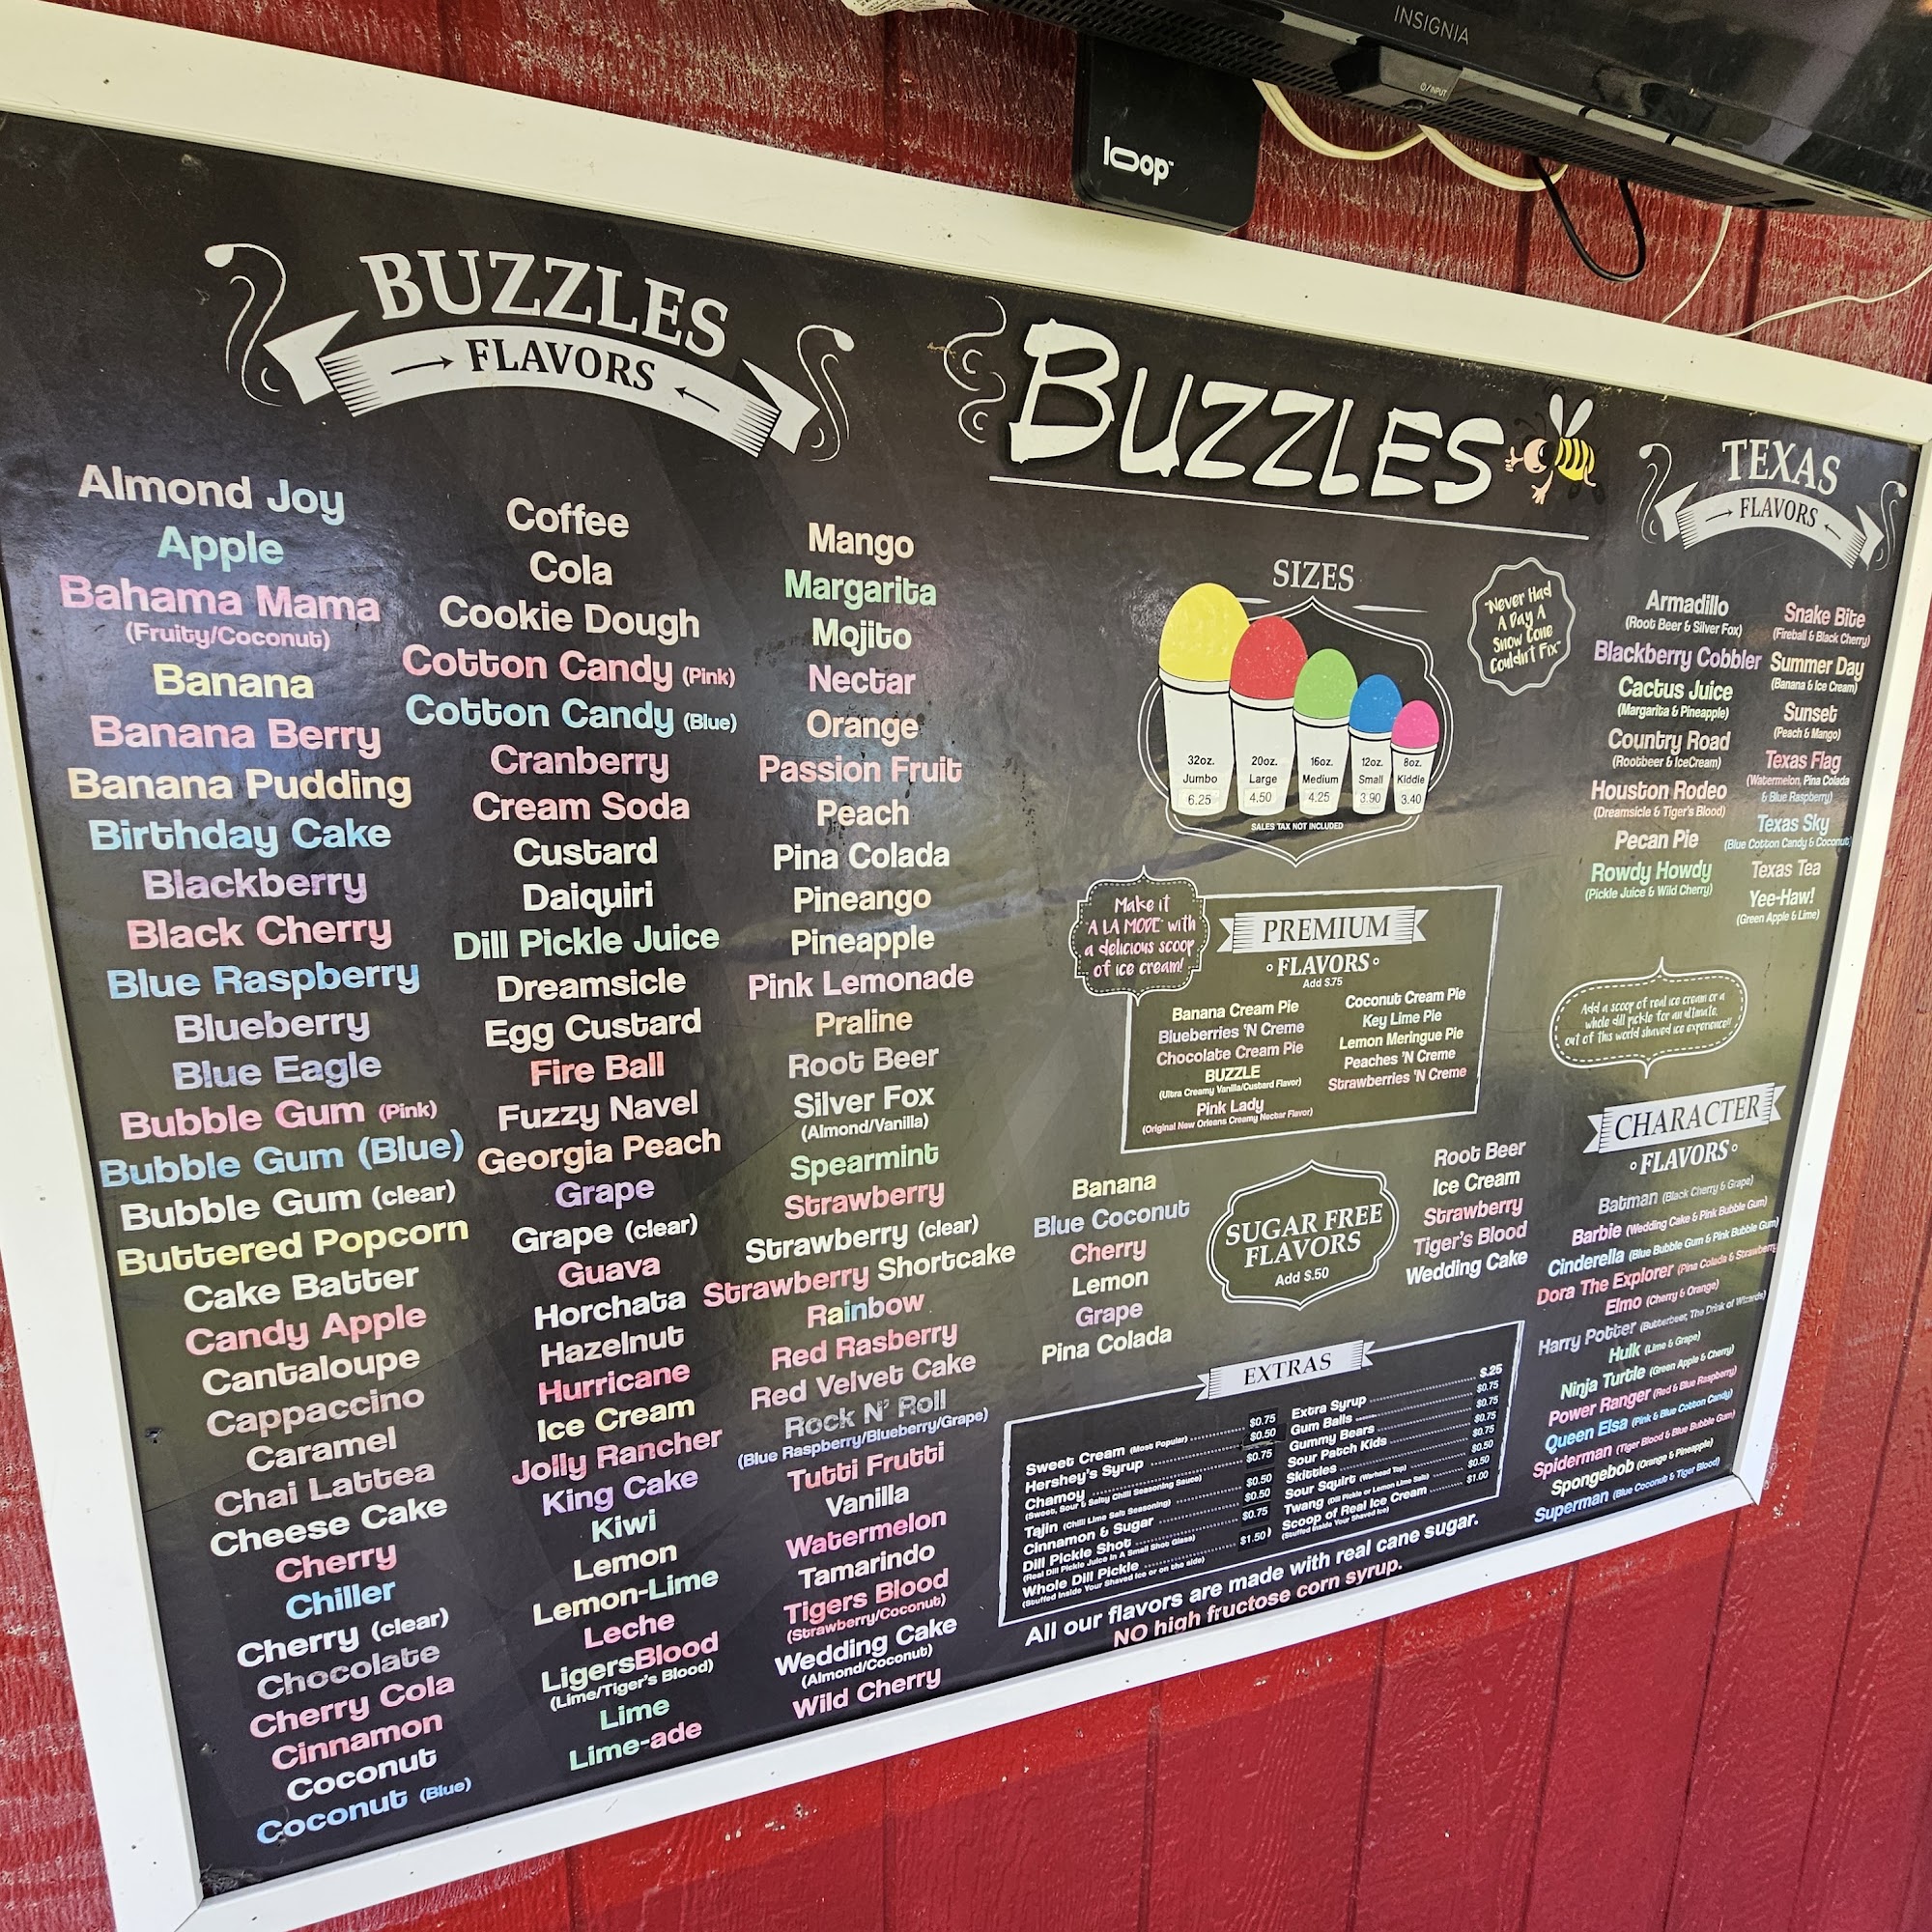 INSIGNIA
⏻/INPUT
loop
BUZZLES
FLAVORS
Almond Joy
Apple
Bahama Mama
(Fruity/Coconut)
Banana
Banana Berry
Banana Pudding
Birthday Cake
Blackberry
Black Cherry
Blue Raspberry
Blueberry
Blue Eagle
Bubble Gum (Pink)
Bubble Gum (Blue)
Bubble Gum (clear)
Buttered Popcorn
Cake Batter
Candy Apple
Cantaloupe
Cappaccino
Caramel
Chai Lattea
Cheese Cake
Cherry
Chiller
Cherry (clear)
Chocolate
Cherry Cola
Cinnamon
Coconut
Coconut (Blue)
Coffee
Cola
Cookie Dough
Cotton Candy (Pink)
Cotton Candy (Blue)
Cranberry
Cream Soda
Custard
Daiquiri
Dill Pickle Juice
Dreamsicle
Egg Custard
Fire Ball
Fuzzy Navel
Georgia Peach
Grape
Grape (clear)
Guava
Horchata
Hazelnut
Hurricane
Ice Cream
Jolly Rancher
King Cake
Kiwi
Lemon
Lemon-Lime
Leche
LigersBlood
(Lime/Tiger's Blood)
Lime
Lime-ade
Mango
Margarita
Mojito
Nectar
Orange
Passion Fruit
Peach
Pina Colada
Pineango
Pineapple
Pink Lemonade
Praline
Root Beer
Silver Fox
(Almond/Vanilla)
Spearmint
Strawberry
Strawberry (clear)
Strawberry Shortcake
Rainbow
Red Rasberry
Red Velvet Cake
Rock N' Roll
(Blue Raspberry/Blueberry/Grape)
Tutti Frutti
Vanilla
Watermelon
Tamarindo
Tigers Blood
(Strawberry/Coconut)
Wedding Cake
(Almond/Coconut)
Wild Cherry
BUZZLES
SIZES
"Never Had
A Day A
Snow Cone
Couldn't Fix"
32oz.
Jumbo
6.25
20oz.
Large
4.50
16oz.
Medium
4.25
12oz.
Small
3.90
8oz.
Kiddie
3.40
SALES TAX NOT INCLUDED
Make it
"A LA MODE" with
a delicious scoop
of ice cream!
PREMIUM
FLAVORS
Add $.75
Banana Cream Pie
Blueberries 'N Creme
Chocolate Cream Pie
BUZZLE
(Ultra Creamy Vanilla/Custard Flavor)
Pink Lady
(Original New Orleans Creamy Nectar Flavor)
Coconut Cream Pie
Key Lime Pie
Lemon Meringue Pie
Peaches 'N Creme
Strawberries 'N Creme
Banana
Blue Coconut
Cherry
Lemon
Grape
Pina Colada
SUGAR FREE
FLAVORS
Add $.50
Root Beer
Ice Cream
Strawberry
Tiger's Blood
Wedding Cake
EXTRAS
Sweet Cream (Most Popular) $0.75
Hershey's Syrup $0.50
Chamoy $0.75
(Sweet, Sour & Salty Chili Seasoning Sauce)
Tajin (Chili Lime Salt Seasoning) $0.50
Cinnamon & Sugar $0.50
Dill Pickle Shot $0.75
(Real Dill Pickle Juice In A Small Shot Glass)
Whole Dill Pickle $1.50
(Stuffed Inside Your Shaved Ice or on the side)
Extra Syrup $.25
Gum Balls $0.75
Gummy Bears $0.75
Sour Patch Kids $0.75
Skittles $0.75
Sour Squirt (Warhead Top) $0.50
Twang (Dill Pickle or Lemon Lime Salt) $0.50
Scoop of Real Ice Cream $1.00
(Stuffed Inside Your Shaved Ice)
All our flavors are made with real cane sugar.
NO high fructose corn syrup.
TEXAS
FLAVORS
Armadillo
(Root Beer & Silver Fox)
Blackberry Cobbler
Cactus Juice
(Margarita & Pineapple)
Country Road
(Rootbeer & IceCream)
Houston Rodeo
(Dreamsicle & Tiger's Blood)
Pecan Pie
Rowdy Howdy
(Pickle Juice & Wild Cherry)
Snake Bite
(Fireball & Black Cherry)
Summer Day
(Banana & Ice Cream)
Sunset
(Peach & Mango)
Texas Flag
(Watermelon, Pina Colada
& Blue Raspberry)
Texas Sky
(Blue Cotton Candy & Coconut)
Texas Tea
Yee-Haw!
(Green Apple & Lime)
Add a scoop of real ice cream or a
whole dill pickle for an ultimate,
out of this world shaved ice experience!!
CHARACTER
FLAVORS
Batman (Black Cherry & Grape)
Barbie (Wedding Cake & Pink Bubble Gum)
Cinderella (Blue Bubble Gum & Pink Bubble Gum)
Dora The Explorer (Pina Colada & Strawberry)
Elmo (Cherry & Orange)
Harry Potter (Butterbeer, The Drink of Wizards)
Hulk (Lime & Grape)
Ninja Turtle (Green Apple & Cherry)
Power Ranger (Red & Blue Raspberry)
Queen Elsa (Pink & Blue Cotton Candy)
Spiderman (Tiger Blood & Blue Bubble Gum)
Spongebob (Orange & Pineapple)
Superman (Blue Coconut & Tiger Blood)